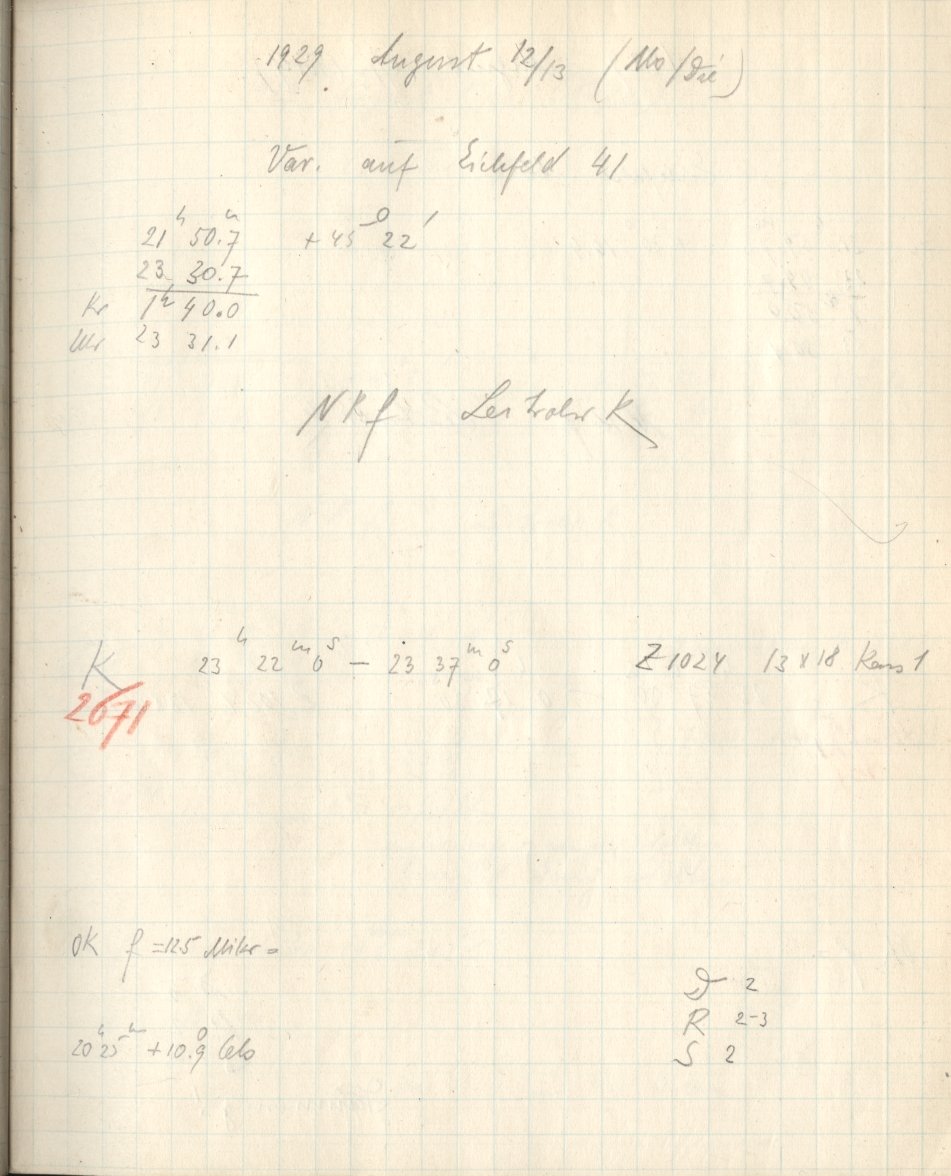 1929 August 12/13 (Mo/Die)
Var. auf Eichfeld 41
21h 50.7m +45° 22'
23 30.7
Kr 1h 40.0
Uhr 23 31.1
NKf
K 23h 22m 0s — 23 37m 0s Z1024 13x18 Kass 1
2671
OK f =12.5 Mikr =
D 2
R 2-3
20h 25m +10.9° Cels
S 2